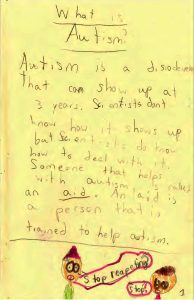 What is
Autism?
Autism is a
that can show up at
3 years. Scientists dont
know how it shows up
but Scientists do know
how to deal with it.
Someone that helps
with autism is
an aid. An aid is
a person that is
trained to help autism.
Stop repeating
Stop
1